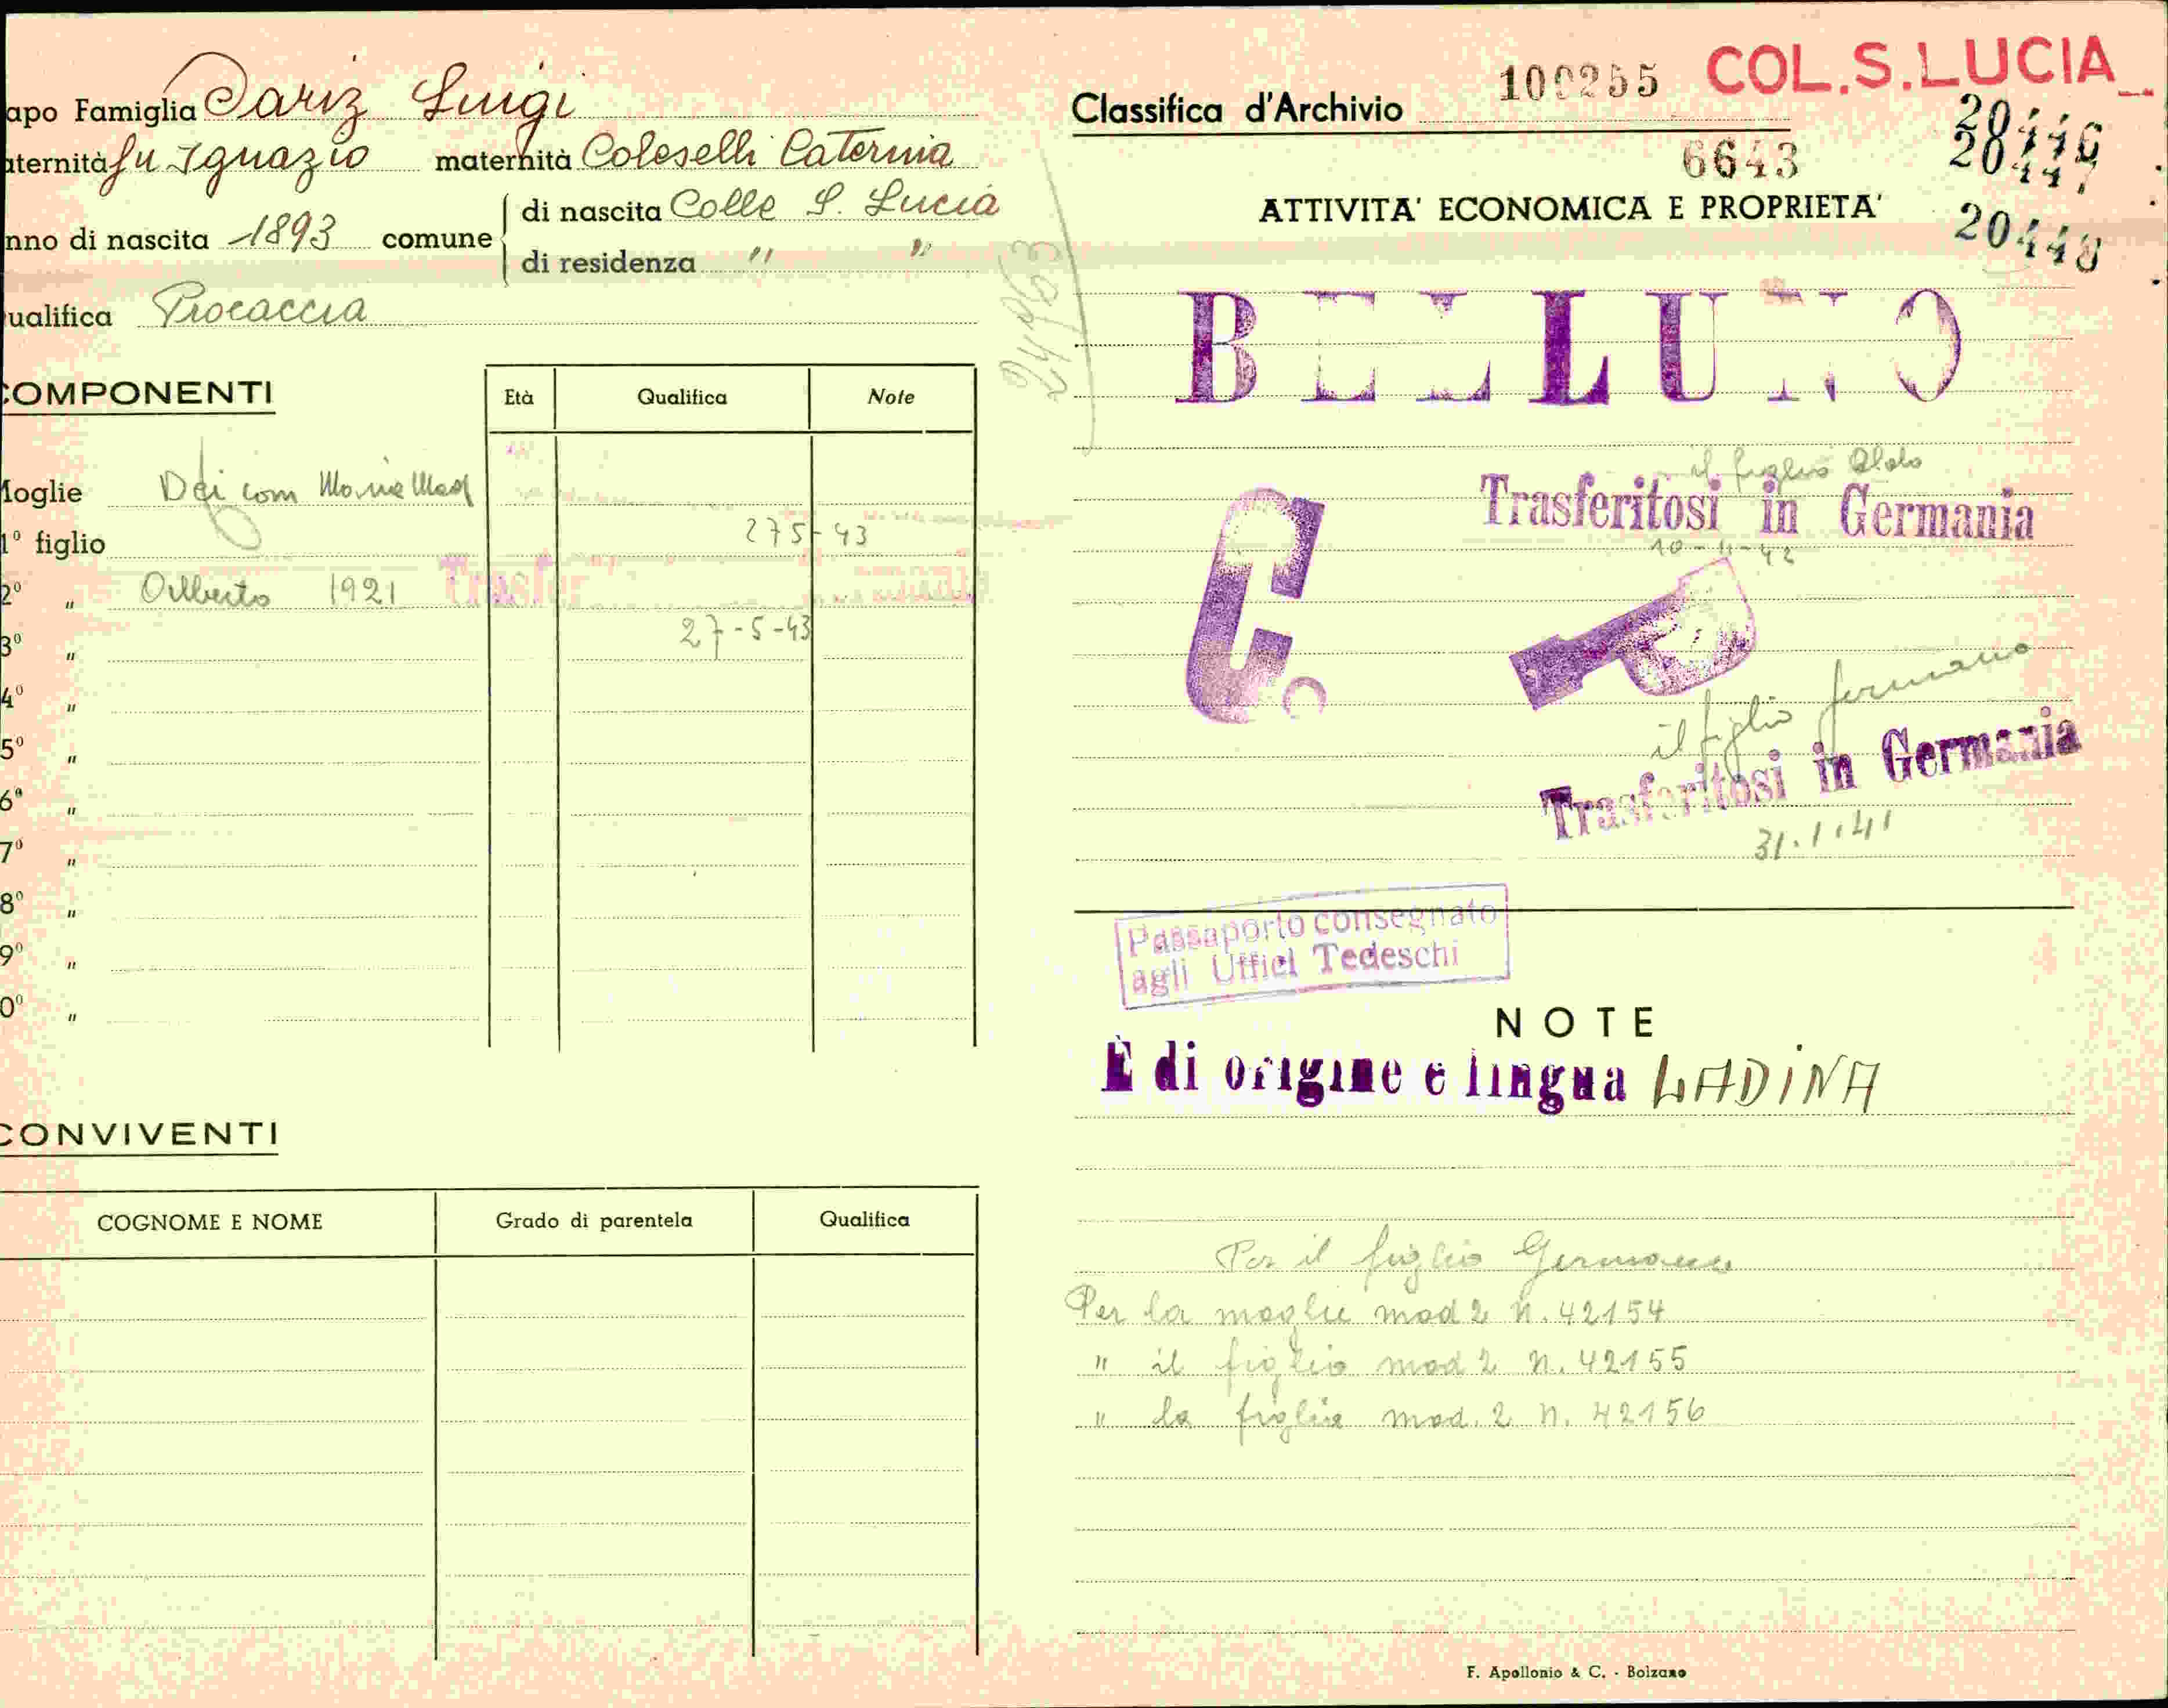 apo Famiglia Dariz Luigi
aternità fu Ignazio maternità Coleselli Caterina
nno di nascita 1893 comune di nascita Colle S. Lucia
di residenza " "
ualifica Procaccia
COMPONENTI
Età Qualifica Note
Moglie Dejcom Maria Mad
1° figlio 275-43
2° " Alberto 1921 Trasfer
3° " 27-5-43
4° "
5° "
6° "
7° "
8° "
9° "
0° "
CONVIVENTI
COGNOME E NOME Grado di parentela Qualifica
24963
Classifica d'Archivio 100255 COL.S.LUCIA
6643
20446
20447
20448
ATTIVITA' ECONOMICA E PROPRIETA'
BELLUNO
il figlio Aldo
Trasferitosi in Germania
10-11-42
C. P
il figlio germano
Trasferitosi in Germania
31.1.41
Passaporto consegnato
agli Uffici Tedeschi
NOTE
È di origine e lingua LADINA
Per il figlio Germano
Per la moglie mod 2 n. 42154
" il figlio mod 2 n. 42155
" la figlia mod. 2 n. 42156
F. Apollonio & C. - Bolzano